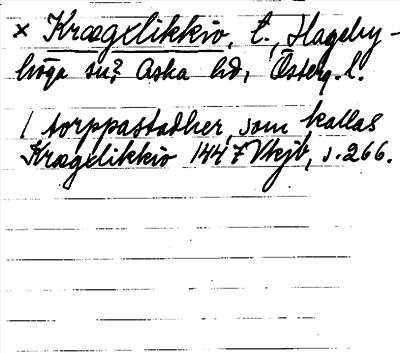 × Krægelikkio, t., Hageby-
höga sn? Aska hd, Österg. l.
1 torppastadher, som kallas
Krægelikkio 1447 Vtkjb, s. 266.